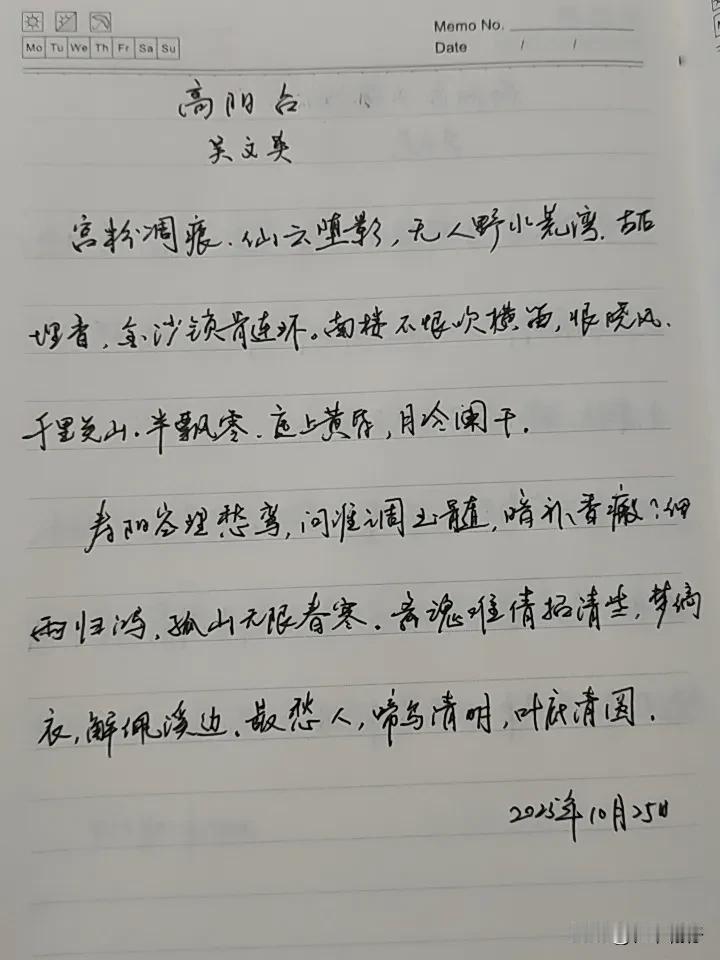 Memo No.
Mo Tu We Th Fr Sa Su
Date / /
高阳台
吴文英
宫粉凋痕、仙云堕影，无人野水荒湾。古石
埋香，金沙锁骨连环。南楼不恨吹横笛，恨晓风、
千里关山。半飘零、庭上黄昏，月冷阑干。
寿阳空理愁鸾，问谁调玉髓，暗补香瘢？细
雨归鸿，孤山无限春寒。离魂难倩招清些，梦缟
衣，解佩溪边。最愁人，啼鸟清明，叶底清圆。
2025年10月25日